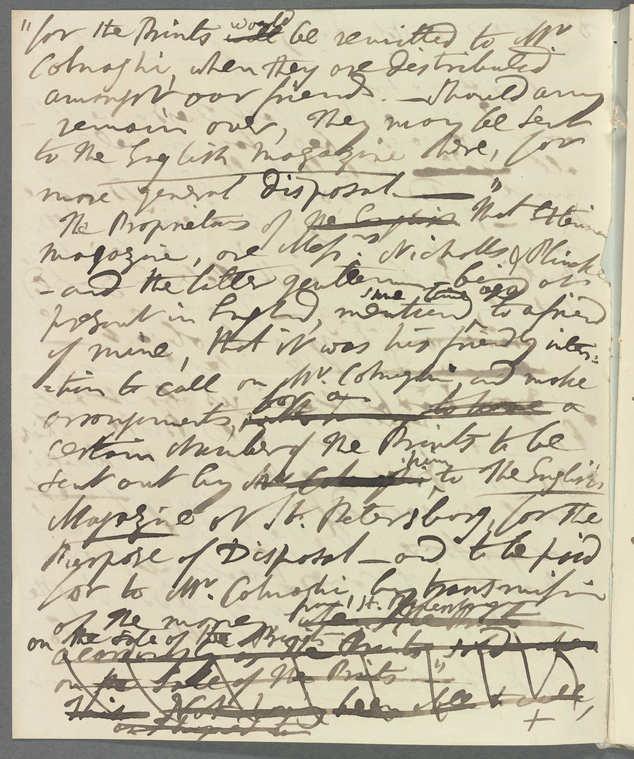 "for the Prints would be remitted to Mr
Colnaghi, when they are distributed
amongst our friends. — Should any
remain over, they may be sent
to the English Magazine there, for
more general disposal — "
The Proprietors of the English that
magazine, are Messrs. Nicholls &
— and the latter gentleman being at
present in England, mentioned, some time ago to a friend
of mine, that it was his friendly inten=
=tion to call on Mr. Colnaghi, and make
arrangements, for a to have a
certain number of the Prints to be
sent out by Mr Colnaghi him, to The English
Magazine at St. Petersburg, for the
Purpose of Disposal — and to be paid
for to Mr. Colnaghi, by transmission
of the money from St. Petersburg
on the Sale of the Prints
on the Sale of the Prints — "
been able to call,
+